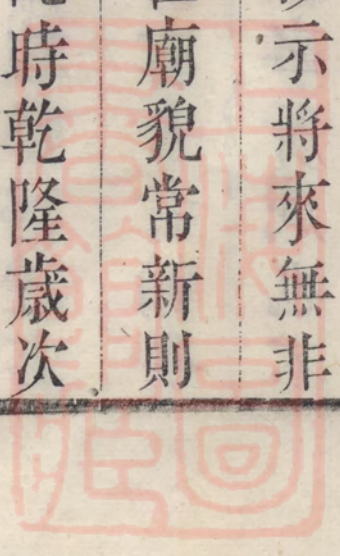 示將來無非
廟貌常新則
時乾隆歲次